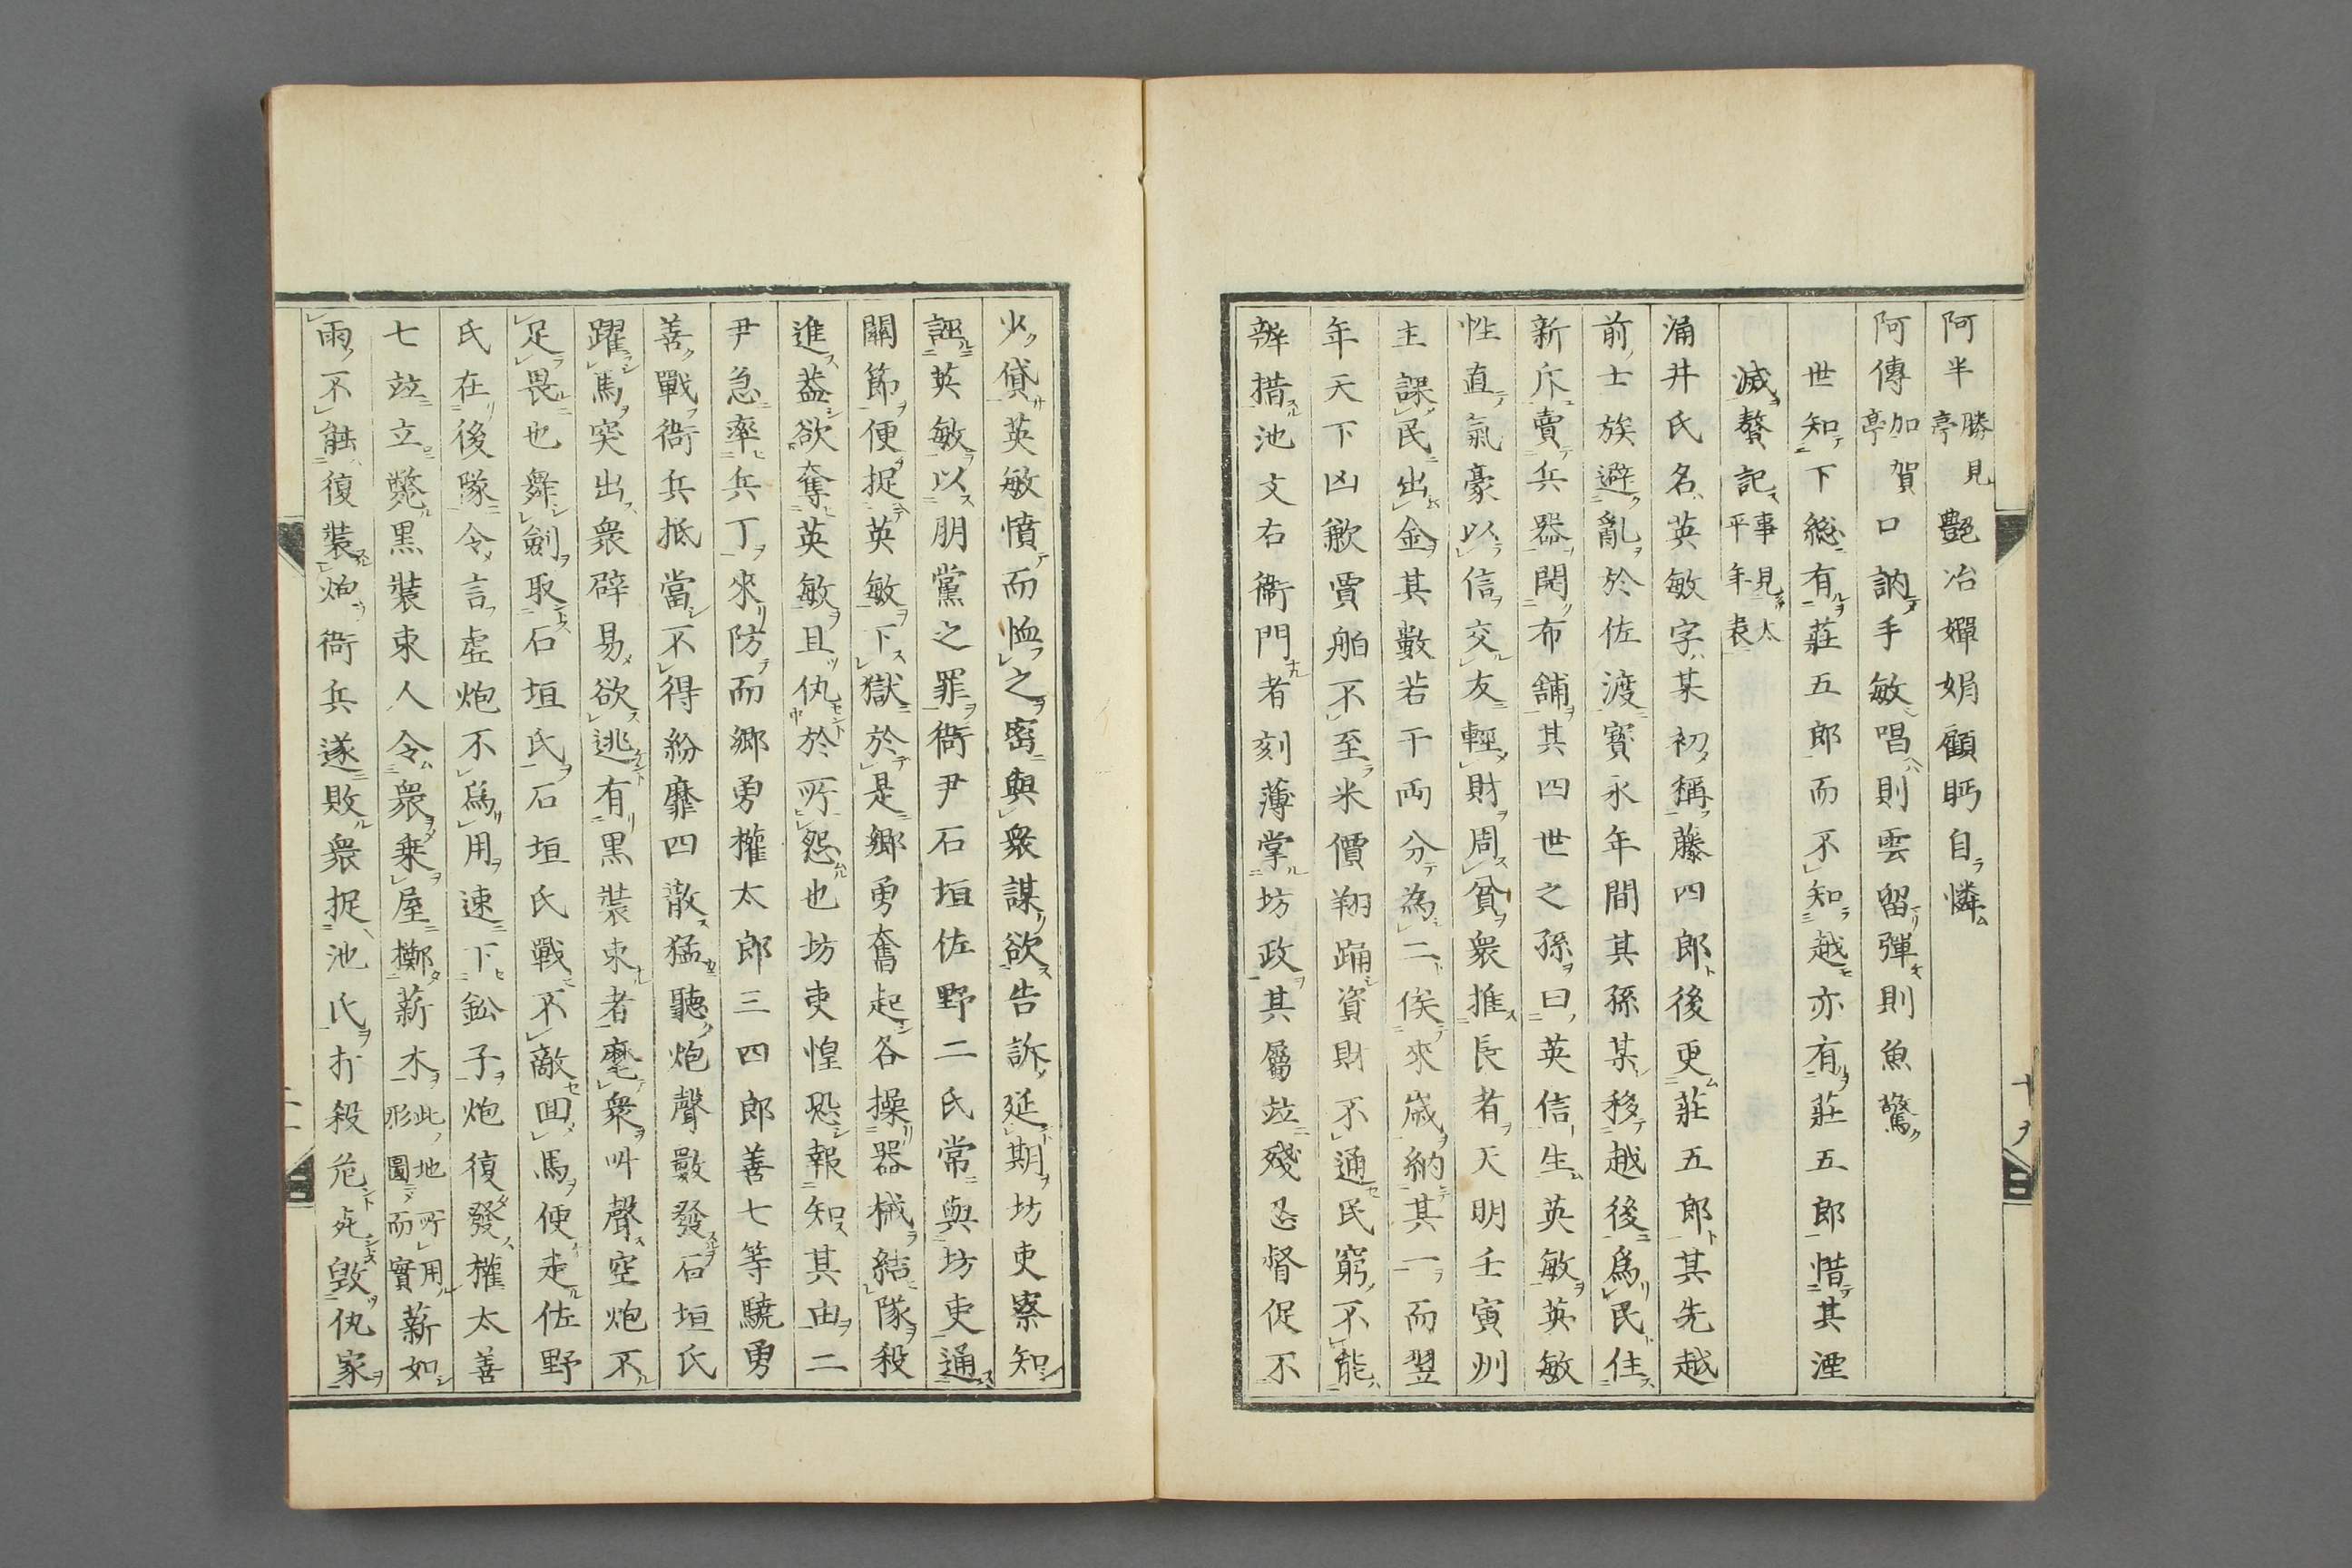 阿半勝見亭艷冶嬋娟顧眄自憐
阿傳加賀亭口訥手敏唱則雲留彈則魚驚
世知下総有莊五郎而不知越亦有莊五郎惜其湮
滅贅記事見太平年表
涌井氏名英敏字某初稱藤四郎後更莊五郎其先越
前士族避亂於佐渡寶永年間其孫某移越後爲民住
新斥賣兵器開布舖其四世之孫曰英信生英敏英敏
性直氣豪以信交友輕財周貧衆推長者天明壬寅州
主課民出金其數若干両分為二俟來歲納其一而翌
年天下凶歉賈舶不至米價翔踊資財不通民窮不能
辨措池文右衛門者刻薄掌坊政其屬竝殘忍督促不
少貸英敏憤而恤之密與衆謀欲告訴延期坊吏察知
誣英敏以朋黨之罪衙尹石垣佐野二氏常與坊吏通
關節便捉英敏下獄於是鄉勇奮起各操器械結隊殺
進葢欲奪英敏且仇於所怨也坊吏惶恐報知其由二
尹急率兵丁來防而鄉勇權太郎三四郎善七等驍勇
善戰衙兵抵當不得紛靡四散猛聽炮聲數發石垣氏
躍馬突出衆辟易欲逃有黒裝束者麾衆叫聲空炮不
足畏也舞劍取石垣氏石垣氏戰不敵回馬便走佐野
氏在後隊令言虛炮不爲用速下鉛子炮復發權太善
七竝立斃黒裝束人令衆乗屋擲薪木此地所用薪形圖而實如
雨不能復裝炮衙兵遂敗衆捉池氏打殺危死毀仇家
十九